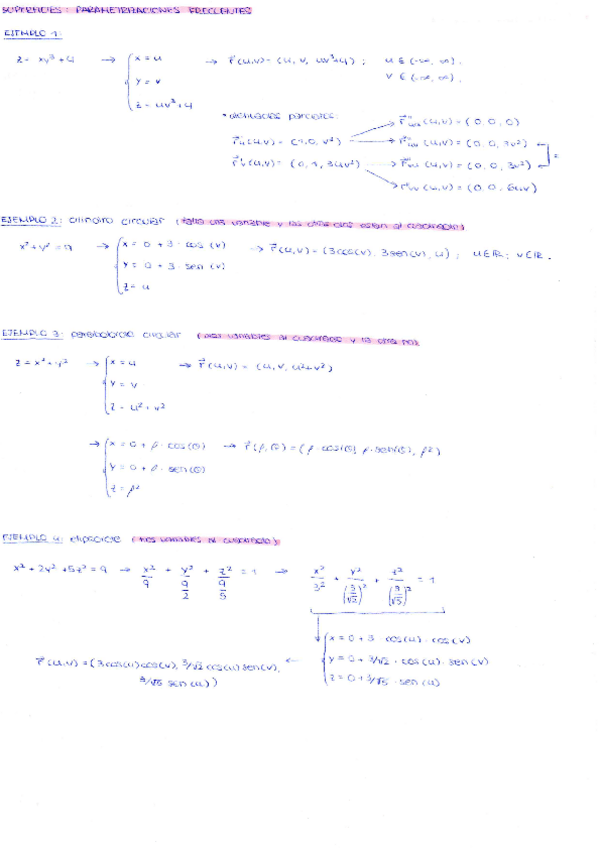 SUPERFICIES: PARAMETRIZACIONES FRECUENTES
EJEMPLO 1:
z = xy³+4 → { x = u → r⃗(u,v) = (u, v, uv³+4) ; u ∈ (-∞, ∞).
y = v v ∈ (-∞, ∞).
z = uv³+4
• derivadas parciales:
r⃗''uu (u,v) = (0, 0, 0)
r⃗'u(u,v) = (1, 0, v³) → r⃗''uv (u,v) = (0, 0, 3v²)
r⃗'v(u,v) = (0, 1, 3uv²) → r⃗''vu (u,v) = (0, 0, 3v²) =
r⃗''vv (u,v) = (0, 0, 6uv)
EJEMPLO 2: cilindro circular (falta una variable y las otras dos están al cuadrado)
x²+y² = 9 → { x = 0 + 3 · cos (v) → r⃗(u,v) = (3cos(v), 3sen(v), u) ; u∈ℝ ; v∈ℝ.
y = 0 + 3 · sen (v)
z = u
EJEMPLO 3: paraboloide circular (dos variables al cuadrado y la otra no)
z = x²+y² → { x = u → r⃗(u,v) = (u, v, u²+v²)
y = v
z = u²+v²
→ { x = 0 + ρ · cos(θ) → r⃗(ρ,θ) = (ρ·cos(θ), ρ·sen(θ), ρ²)
y = 0 + ρ · sen(θ)
z = ρ²
EJEMPLO 4: elipsoide (tres variables al cuadrado)
x² + 2y² + 5z² = 9 → x²/9 + y²/(9/2) + z²/(9/5) = 1 → x²/3² + y²/(3/√2)² + z²/(3/√5)² = 1
{ x = 0 + 3 cos(u) · cos(v)
r⃗(u,v) = (3cos(u)cos(v), 3/√2 cos(u)sen(v), ← y = 0 + 3/√2 · cos(u) · sen(v)
3/√5 sen(u)) z = 0 + 3/√5 · sen(u)